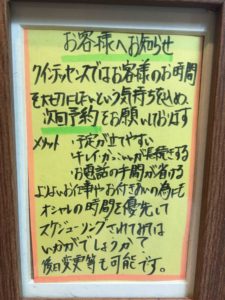 お客様へお知らせ
クインテッセンスではお客様のお時間
を大切にしたいという気持ちを込め、
次回予約をお願いしております
メリット ・予定が立てやすい
・キレイ、かっこいいが長続きする
・お電話の手間が省ける
よほどお仕事やお付きあいの為にも
オシャレの時間を優先して
スケジューリングされてみては
いかがでしょうか?
後日変更等も可能です。